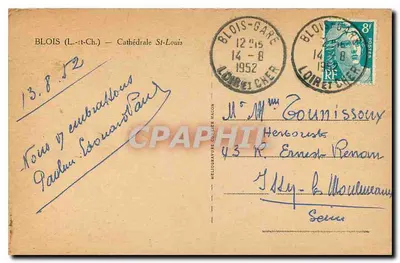 BLOIS (L.-et-Ch.) — Cathédrale St-Louis
13.8.52
Nous vs embrassons
Paulette Edouard Paul
BLOIS-GARE
12H15
14-8
1952
LOIR ET CHER
BLOIS-GARE
14-8
LOIR ET CHER
8F
POSTES
RF
Mr Mme Tounissoux
Herboriste
43 R. Ernest Renan
Issy-les-Moulineaux
Seine
cparama.com